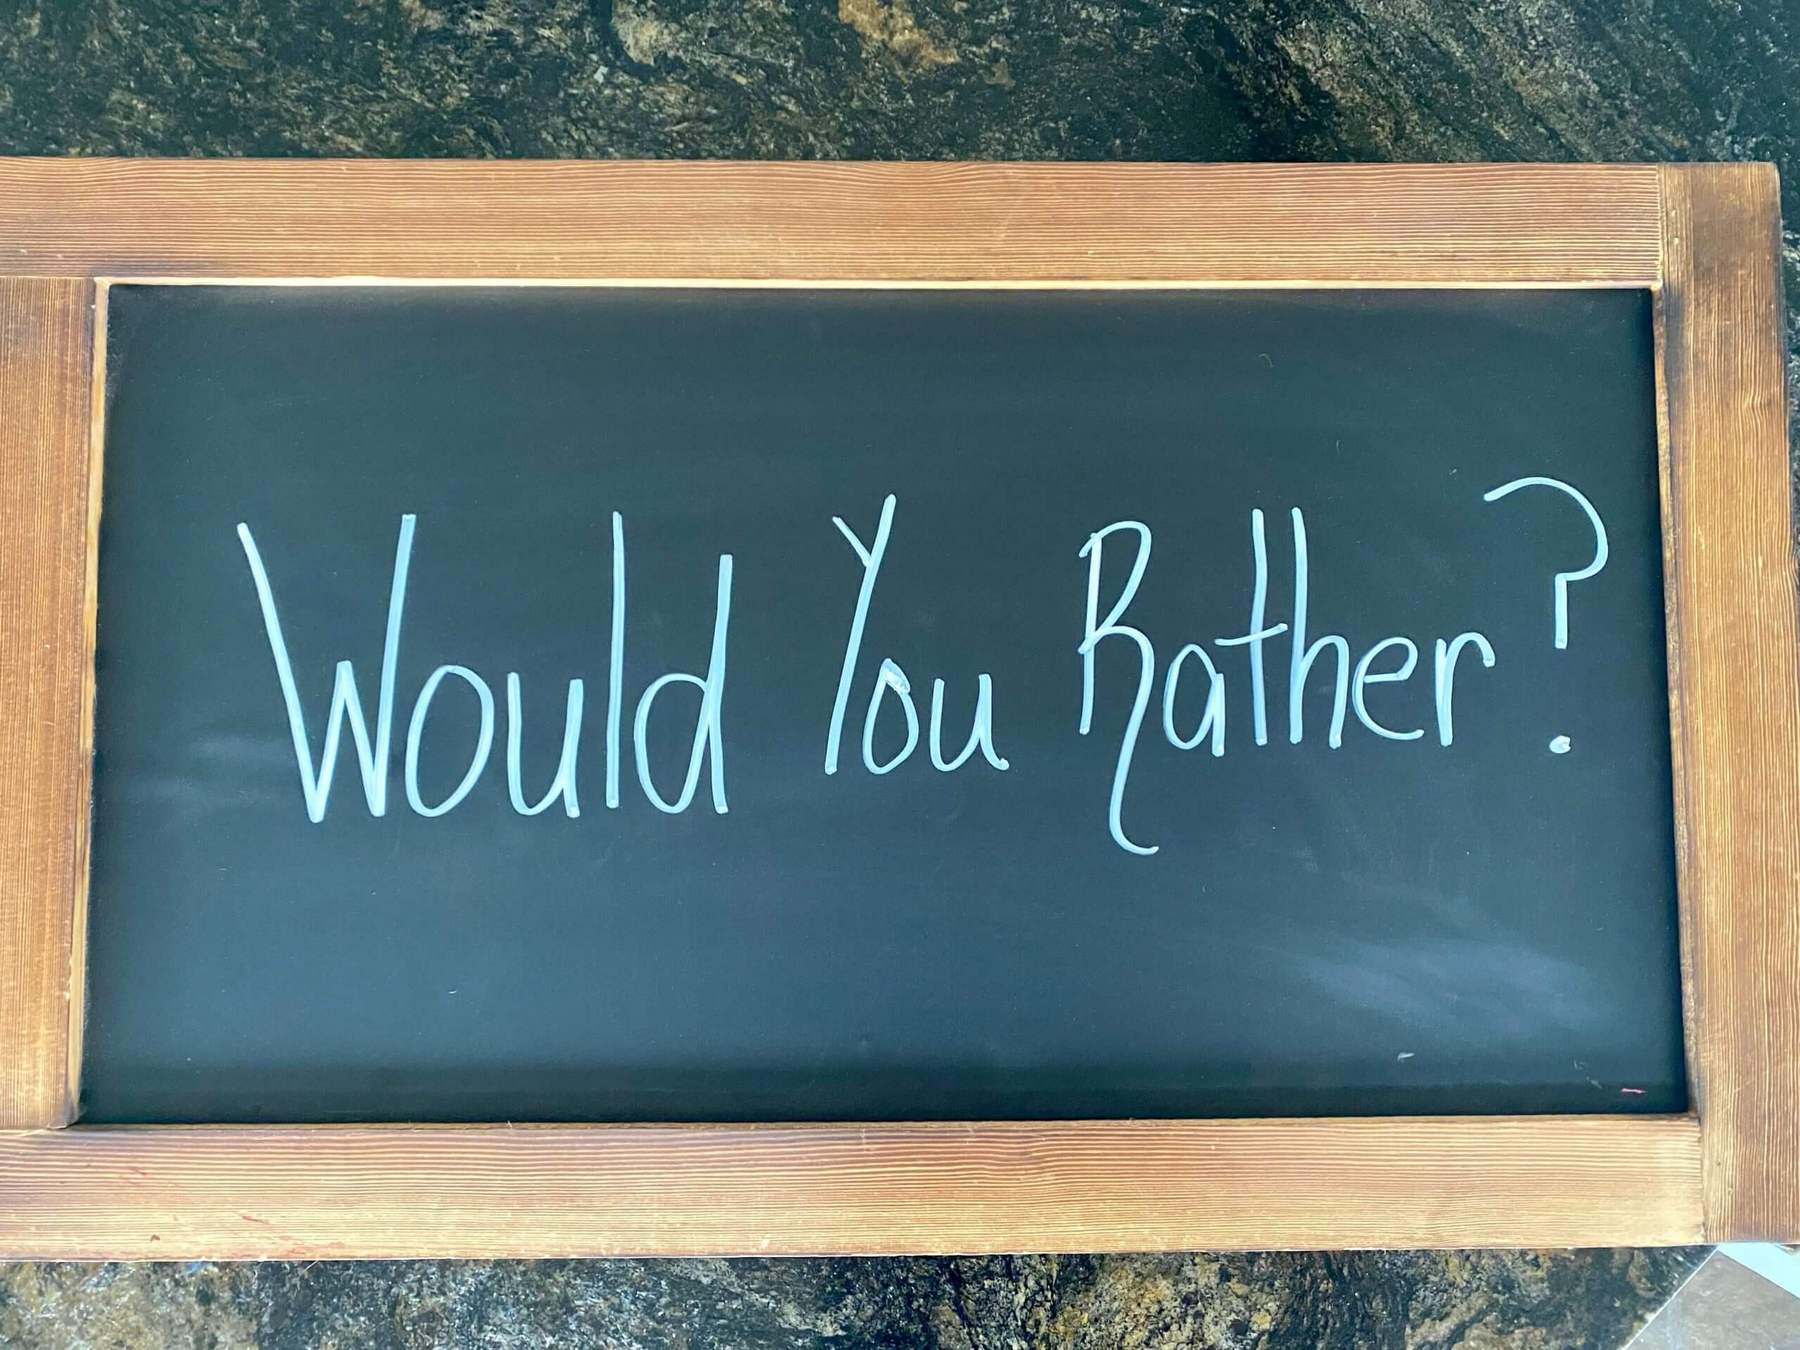 Would You Rather?